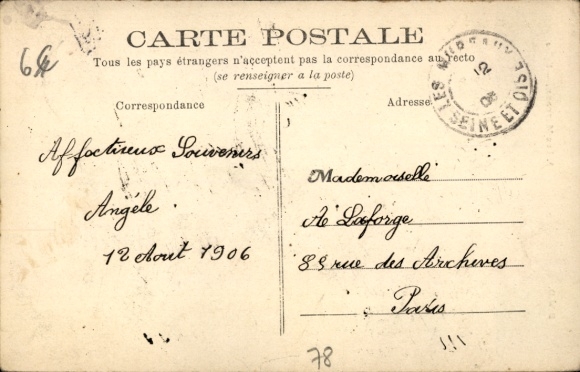 64
CARTE POSTALE
Tous les pays étrangers n'acceptent pas la correspondance au recto
(se renseigner a la poste)
Correspondance
Adresse
LES MUREAUX
12
06
SEINE ET OISE
Affectueux Souvenirs
Angéle
12 Aout 1906
Mademoiselle
A Laforge
83 rue des Archives
Paris
78